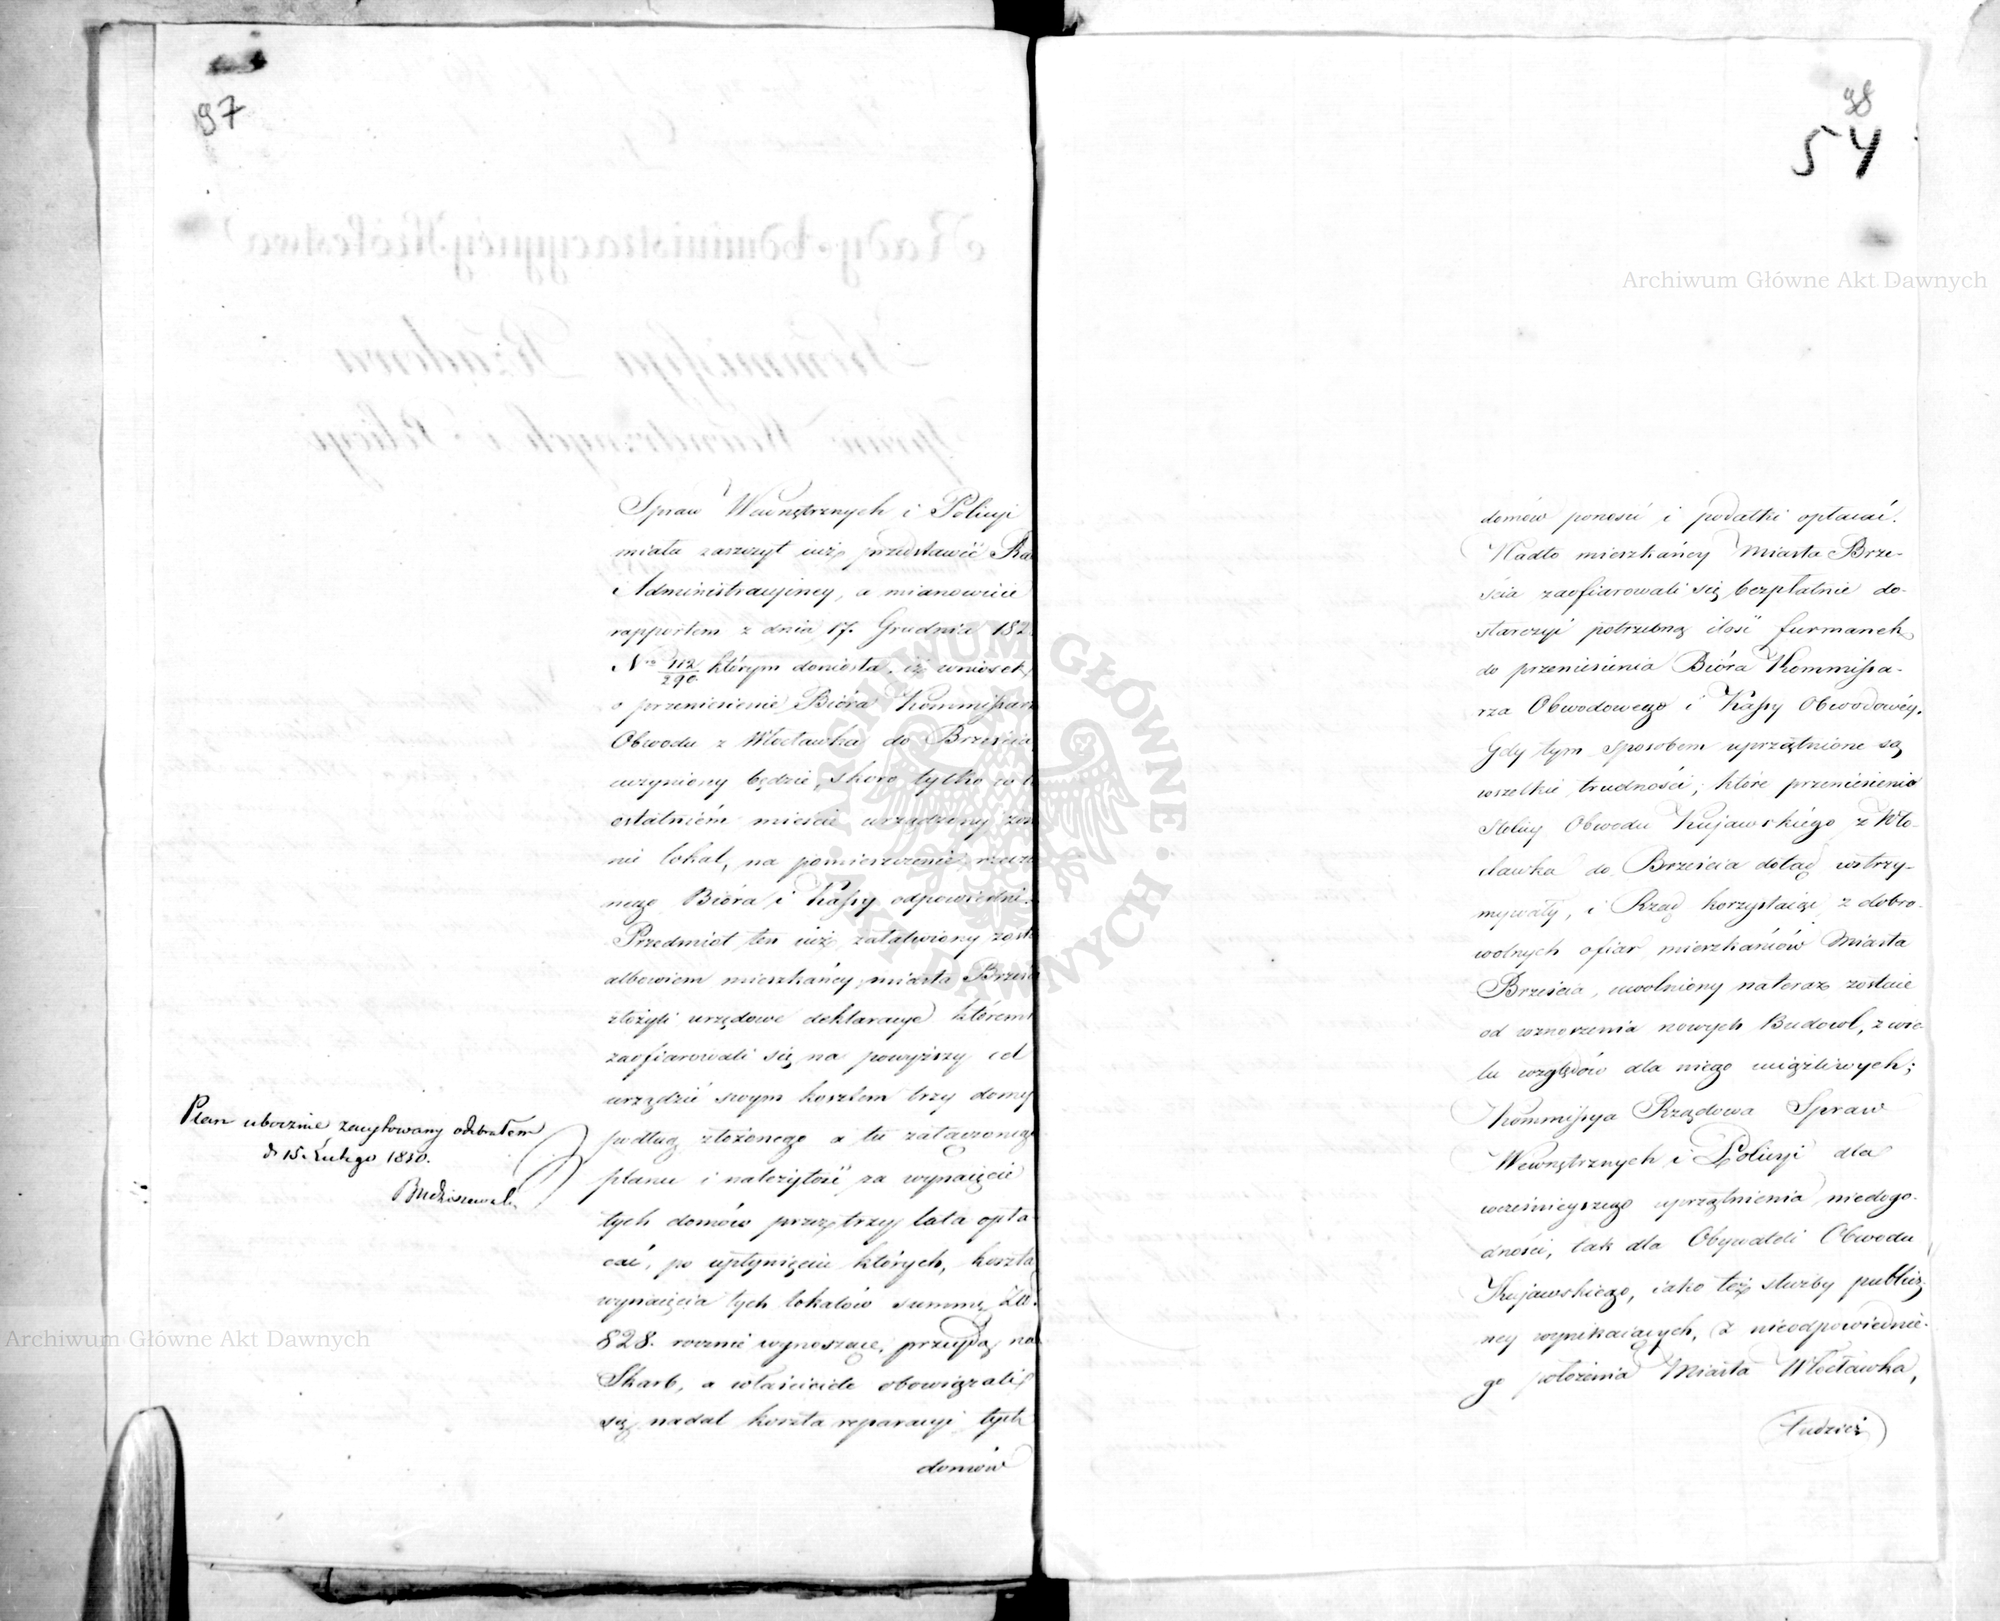 97
Spraw Wewnętrznych i Policyi
miała zaszczyt iuż przedstawić Ra
Administracyiney, a mianowicie
rapportem z dnia 17. Grudnia 182
Nro 112/290 którym doniosła, iż wniosek
o przeniesienie Bióra Kommissarz
Obwodu z Włocławka do Brześcia
uczyniony będzie, skoro tylko w t
ostatniém mieście urządzony zos
nie lokal, na pomieszczenie rzeczo
nego Bióra i Kassy odpowiedni.
Przedmiot ten iuż załatwiony zost
albowiem mieszkańcy miasta Brześc
złożyli urzędowe deklaracye któremi
zaofiarowali się na powyższy cel
urządzić swym kosztem trzy domy
podług złożonego a tu załączonego
planu i należytość za wynaięcie
tych domów przez trzy lata opła-
cać, po upłynięciu których, koszta
wynaięcia tych lokalów summę Zł.
828. rocznie wynoszące, przeydą na
Skarb, a właściciele obowiązali
się nadal koszta reparacyi tych
domów
Plan ubocznie zacytowany odebrałem
d. 15. Lutego 1830.
98
54
domów ponosić i podatki opłacać.
Nadto mieszkańcy Miasta Brze-
ścia zaofiarowali się bezpłatnie do-
starczyć potrzebną ilość furmanek
do przeniesienia Bióra Kommissa-
rza Obwodowego i Kassy Obwodowéy.
Gdy tym sposobem uprzątnione są
wszelkie trudności, które przeniesienie
Stolicy Obwodu Kujawskiego z Wło-
cławka do Brześcia dotąd wstrzy-
mywały, i Rząd korzystaiąc z dobro-
wolnych ofiar mieszkańców Miasta
Brześcia, uwolniony nateraz zostaie
od wznoszenia nowych Budowl, z wie-
lu względów dla niego uciążliwych;
Kommissya Rządowa Spraw
Wewnętrznych i Policyi dla
wcześnieyszego uprzątnienia niedogo-
dności, tak dla Obywateli Obwodu
Kujawskiego, iako też służby publicz-
ney wynikaiących, z nieodpowiednie-
go położenia Miasta Włocławka,
tudzież
Archiwum Główne Akt Dawnych
Archiwum Główne Akt Dawnych
ARCHIWUM GŁÓWNE · AKT DAWNYCH ·